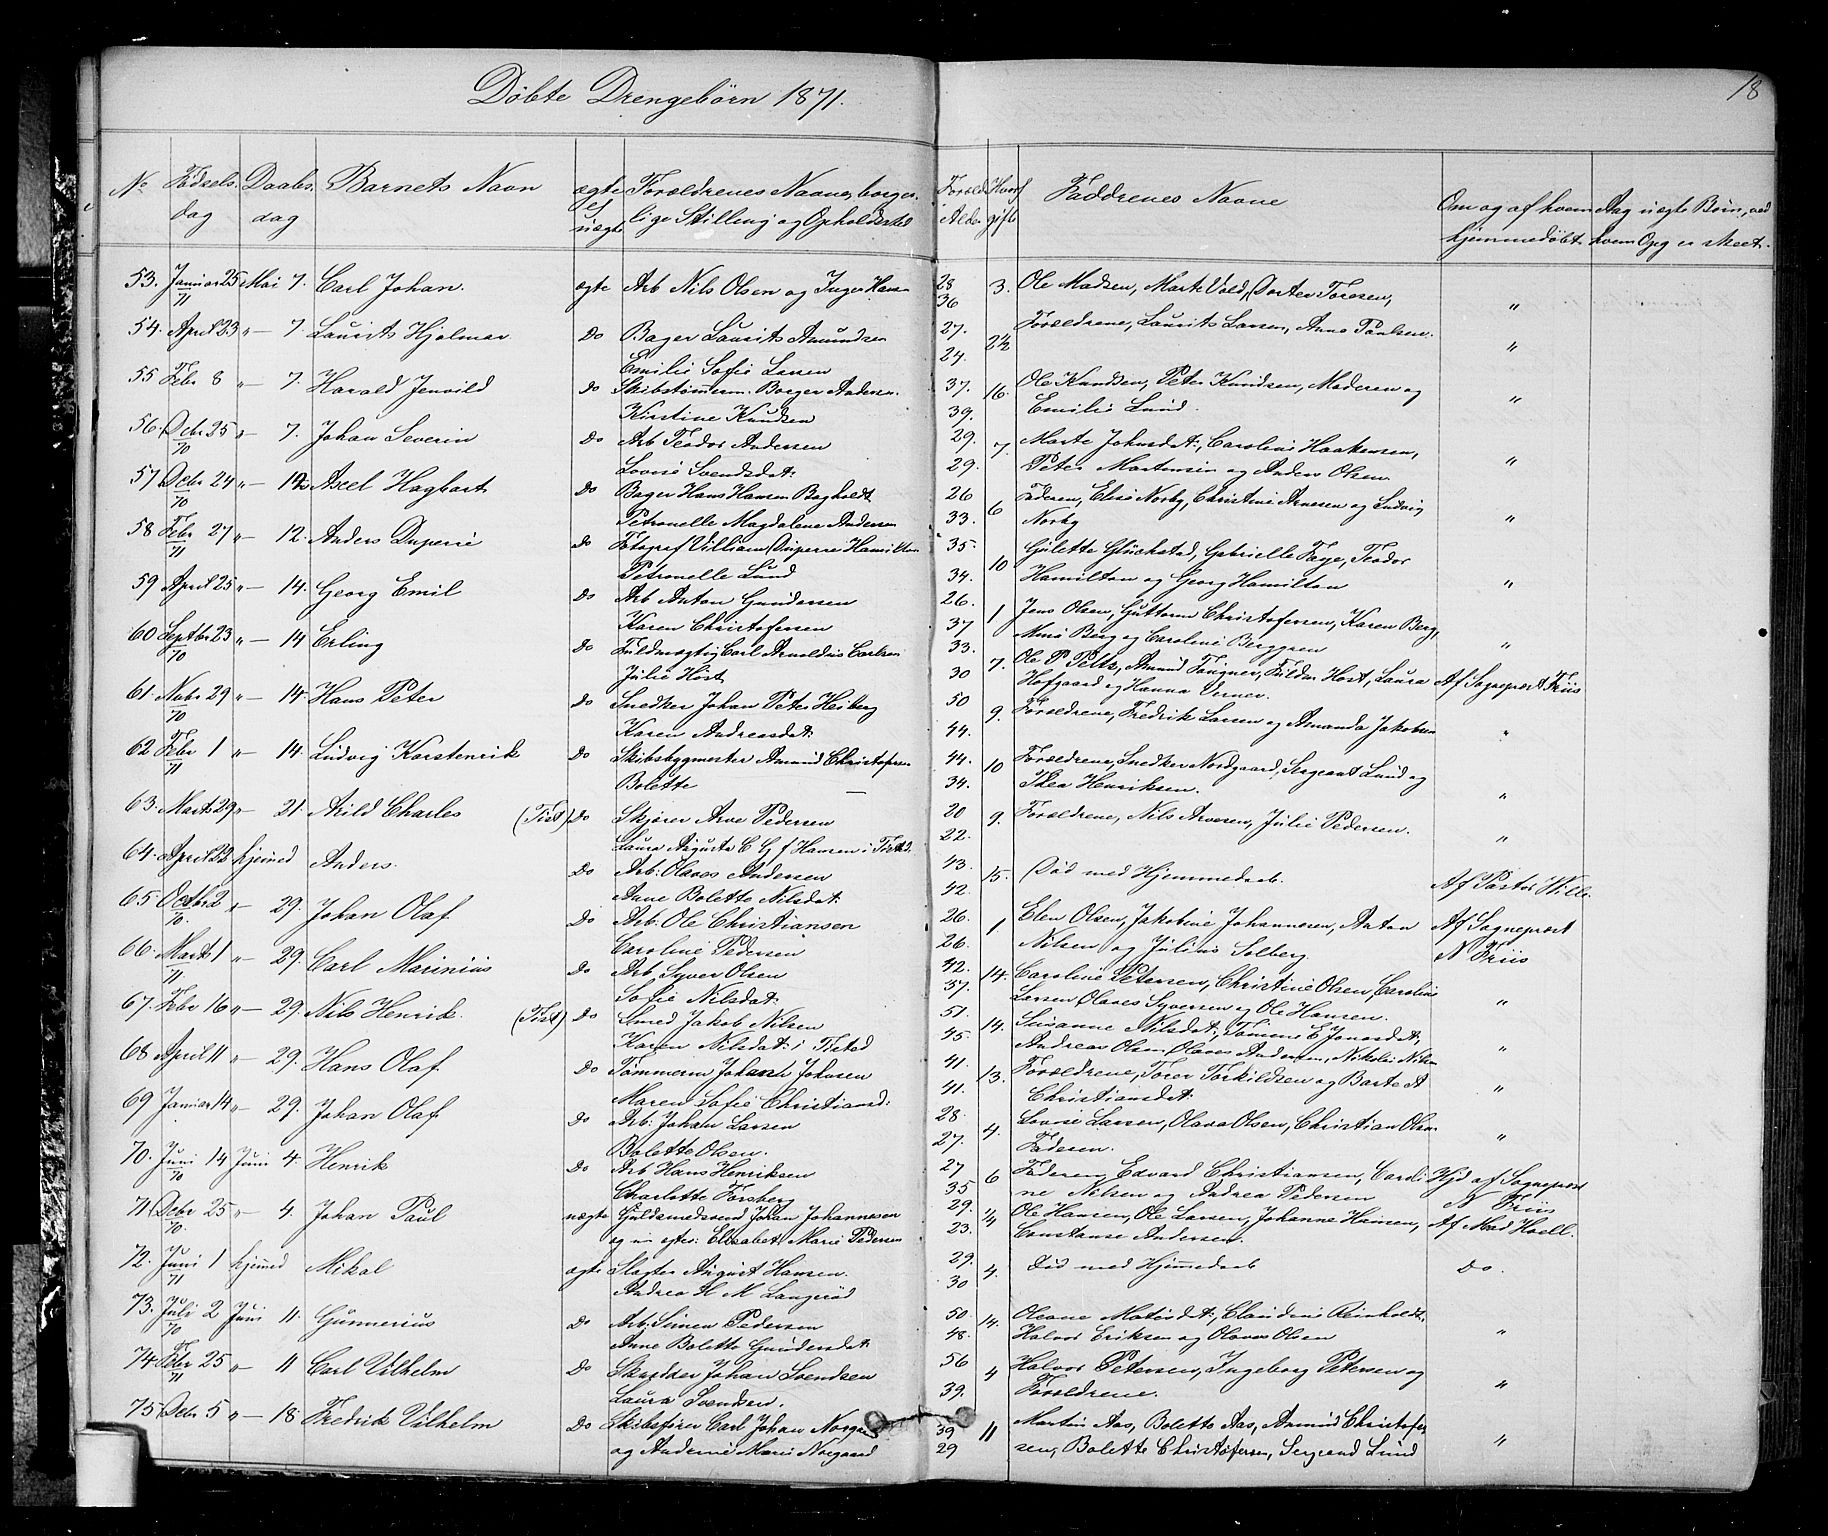 Döbte Drengebörn 1871.
18
No Födsels dag Daabs dag Barnets Navn ægte el uægte Forældrenes Navne, borgerlige Stilling og Opholdssted Foræld Alder Hvorl gifte Faddrenes Navne Om og af hvem hjemmedöbt Ang uægte Börn, ved hvem Opg er skeet.
53. Januar 25 71 Mai 7. Carl Johan. ægte Arb Nils Olsen og Inger Hans 28 36 3. Ole Madsen, Marte Vold, Dortea Toresen, "
54. April 23 " 7. Laurits Hjalmar Do Bager Laurits Amundsen
Emilie Sofie Larsen 27. 24. 2½ Forældrene, Laurits Larsen, Anne Paulsen. "
55 Febr 8 " 7. Harald Jenvild Do Skibstömmerm. Borger Andersen.
Kirstine Knudsen 37. 39. 16. Ole Knudsen, Peter Knudsen, Maderen og
Emilie Lund. "
56. Dcbr 25 70 " 7. Johan Severin Do Arb Teodor Andersen
Lovise Svendsdat. 29. 29. 7. Marte Johnsdat:, Caroline Haakensen,
Peter Martensen og Anders Olsen "
57 Dcbr 24 70 " 12 Axel Hagbart Do Bager Hans Hansen Bagholdt
Petronelle Magdalene Andersen 26 33. 6 Faderen, Elise Norby, Christine Arnesen og Ludvig
Norby "
58 Febr 27 71 " 12. Anders Duperie Do Fotograf Villiam Duperie Hamilton
Petronelle Lund 35. 34. 10 Gulette Glückstad, Gabrielle Faye, Teodor
Hamilton og Georg Hamilton "
59 April 25 " 14. Georg Emil Do Arb Anton Gundersen
Karen Christofersen 26. 37 1 Jens Olsen, Guttorm Christofersen, Karen Berg,
Mina Berg og Caroline Berggren "
60 Septbr 23 70 " 14 Erling Do Fuldmægtig Carl Arnoldus Carlsen
Julie Höst 33. 30 7. Ole P Peltz, Amund Fougner, Fuldm Höst, Laura
Hofgaard og Hanna Verner. Af Sognepræst Friis
61. Nvbr 29 70 " 14. Hans Peter Do Snedker Johan Peter Heiberg
Karen Andreasdat. 50 44. 9. Forældrene, Fredrik Larsen og Amanda Jakobsen "
62 Febr 1 71 " 14. Ludvig Karstenrik Do Skibsbygmester Amund Christofersen
Bolette — 44. 34. 10 Forældrene, Snedker Nordgaard, Sergeant Lund og
Thea Henriksen. "
63. Marts 29 " 21. Arild Charles (Tist) Do Skipper Arve Pedersen
Laura Augusta C G f Hansen i Tisted. 20 22. 9. Forældrene, Nils Arvesen, Julie Pedersen. "
64. April 22 hjemmed Anders. Do Arb: Olaves Andersen
Anne Bolette Nilsdat. 43. 42. 15. Död med Hjemmedaab. Af Pastor Wille.
65 Octbr 2 70 " 29. Johan Olaf Do Arb: Ole Christiansen
Caroline Pedersen 26. 26. 1 Elen Olsen, Jakobine Johannesen, Anton
Nilsen og Julius Solberg Af Sognepræst
N Friis
66. Mart 1 71 " 29. Carl Marinius Do Arb Syver Olsen
Sofie Nilsdat: 42. 37. 14. Caroline Petersen, Christine Olsen, Caroline
Larsen, Olaves Syversen og Ole Hansen. "
67. Febr 16 " 29. Nils Henrik (Tist) Do Smed Jakob Nilsen
Karen Nilsdat: i Tisted 51. 45. 14. Susanne Nilsdat:, Tomine E Jonasdat,
Andreas Olsen, Olaves Andersen, Nikolai Nilsen "
68 April 11 " 29. Hans Olaf Do Tömmerm Johan Johnsen
Maren Sofie Christiansd: 41. 41. 13. Forældrene, Torer Torkildsen og Barte A
Christiansdat. "
69 Januar 14 " 29. Johan Olaf Do Arb: Johan Larsen
Bolette Olsen. 28. 27. 4. Lovise Larsen, Olava Olsen, Christian Olsen
Faderen. "
70. Juni 14 70 Juni 4. Henrik Do Arb Hans Henriksen
Charlotte Forsberg 27 35 6 Faderen, Edvard Christiansen, Caroli
ne Nilsen og Andrea Pedersen Hjd af Sognepræst
N Friis
71 Dcbr 25 70 " 4. Johan Paul uægte Guldsmedsvend Johan Johannesen
og Elisabet Marie Pedersen 29. 23. ¼ Ole Hansen, Ole Larsen, Johanne Hansen,
Constanse Andersen. Af Mad Hoell.
72. Juni 1 71 hjemmed Mikal ægte Slagter August Hansen.
Andrea H M Langeröd 29. 30 4. Död med Hjemmedaab Do.
73. Juli 2 70 Juni 11. Gunnerius Do Arb: Simen Pedersen
Anne Bolette Gundersdat. 50. 48. 14. Oleane Matisdat:, Claudine Reinholdt,
Halvor Eriksen og Olaves Olsen "
74 Febr 25 71 " 11 Carl Vilhelm Do Skrædder Johan Svendsen
Laura Svendsen. 56 39. 4 Halvor Petersen, Ingeborg Petersen og
Forældrene. "
75 Dcbr 5 " 18 Fredrik Vilhelm Do Skibsförer Carl Johan Norgaard
og Andrine Marie Norgaard 39 29 11 Martin Aas, Bolette Aas, Amund Christofer
sen, Bolette Christofersen, Sergeand Lund "